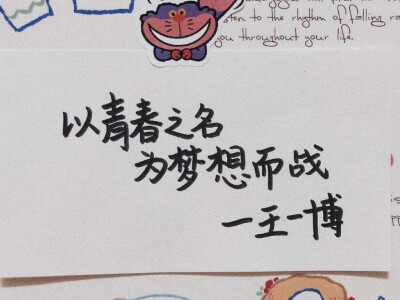 listen to the rhythm of falling
you throughout your life.
以青春之名
为梦想而战
一王一博